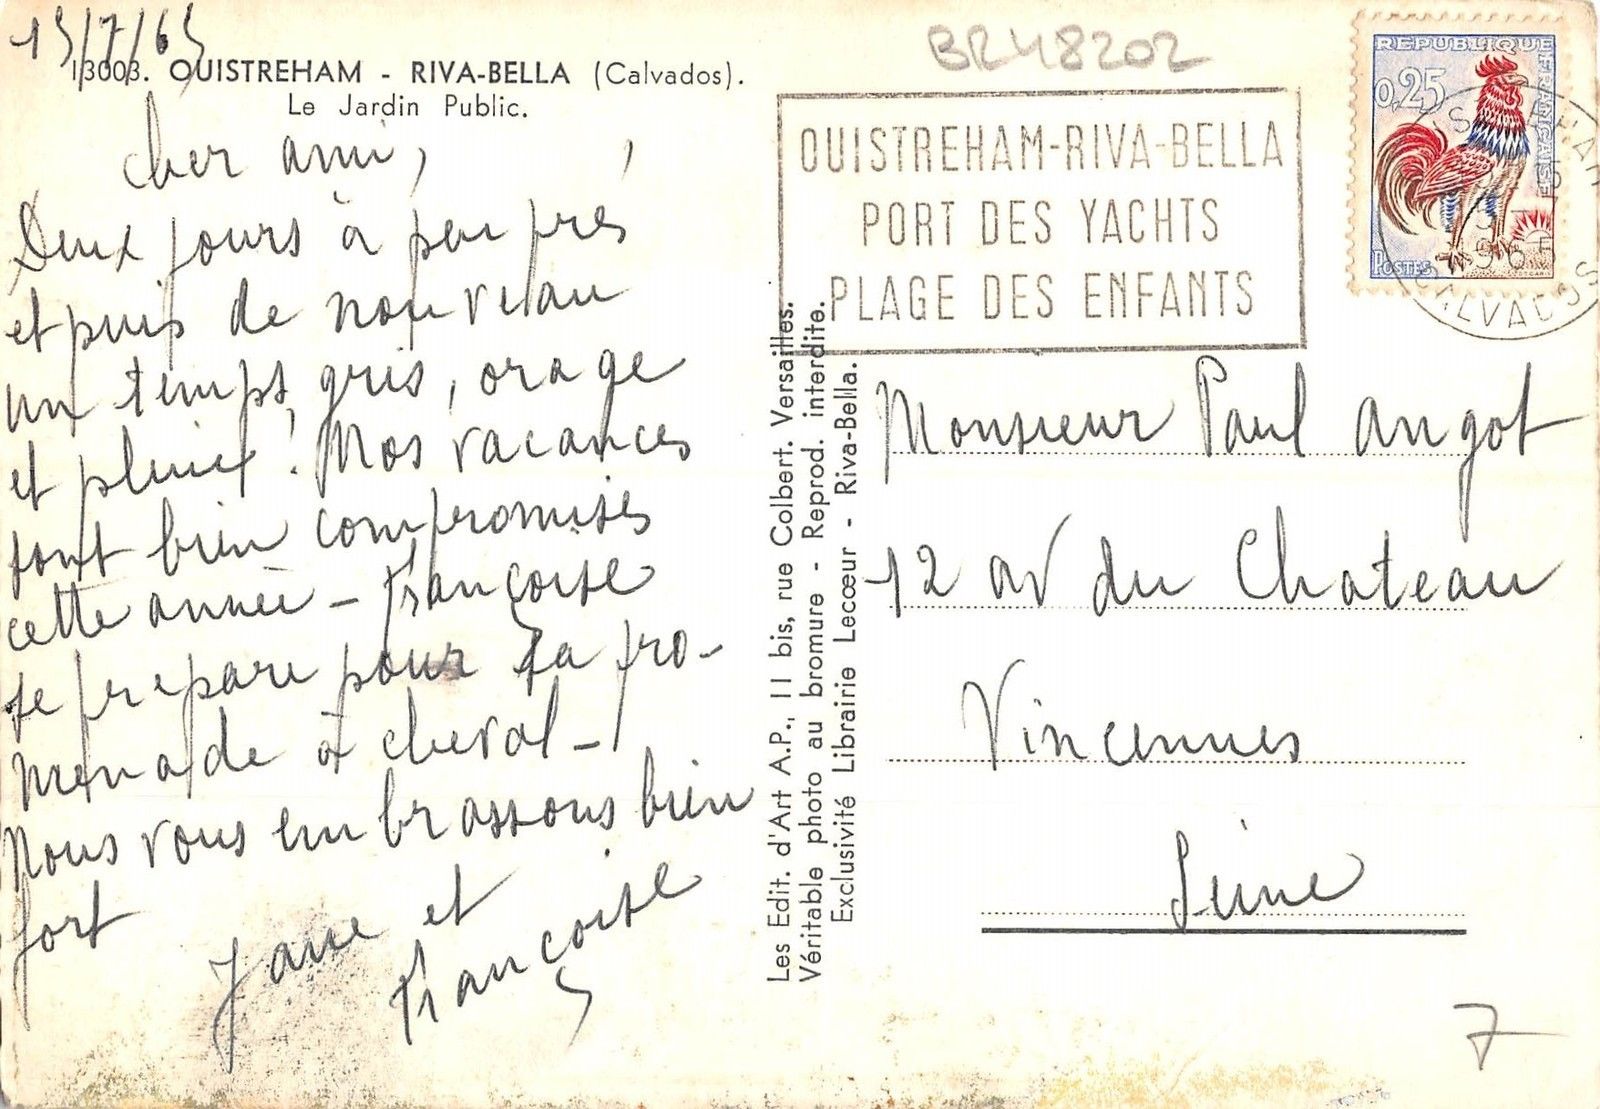 15/7/65
13003. OUISTREHAM - RIVA-BELLA (Calvados).
Le Jardin Public.
cher ami,
Deux jours à peu près
et puis de nouveau
un temps gris, orage
et pluie! Nos vacances
sont bien compromises
cette année - Françoise
se prepare pour sa pro-
menade à cheval -
Nous vous embrassons bien
fort
Jane et
Françoise
Les Edit. d'Art A.P., 11 bis, rue Colbert. Versailles.
Véritable photo au bromure - Reprod. interdite.
Exclusivité Librairie Lecœur - Riva-Bella.
BR48202
OUISTREHAM-RIVA-BELLA
PORT DES YACHTS
PLAGE DES ENFANTS
REPUBLIQUE FRANÇAISE
0,25
POSTES
CALVADOS
Monsieur Paul Angot
12 av du Chateau
Vincennes
Seine
7